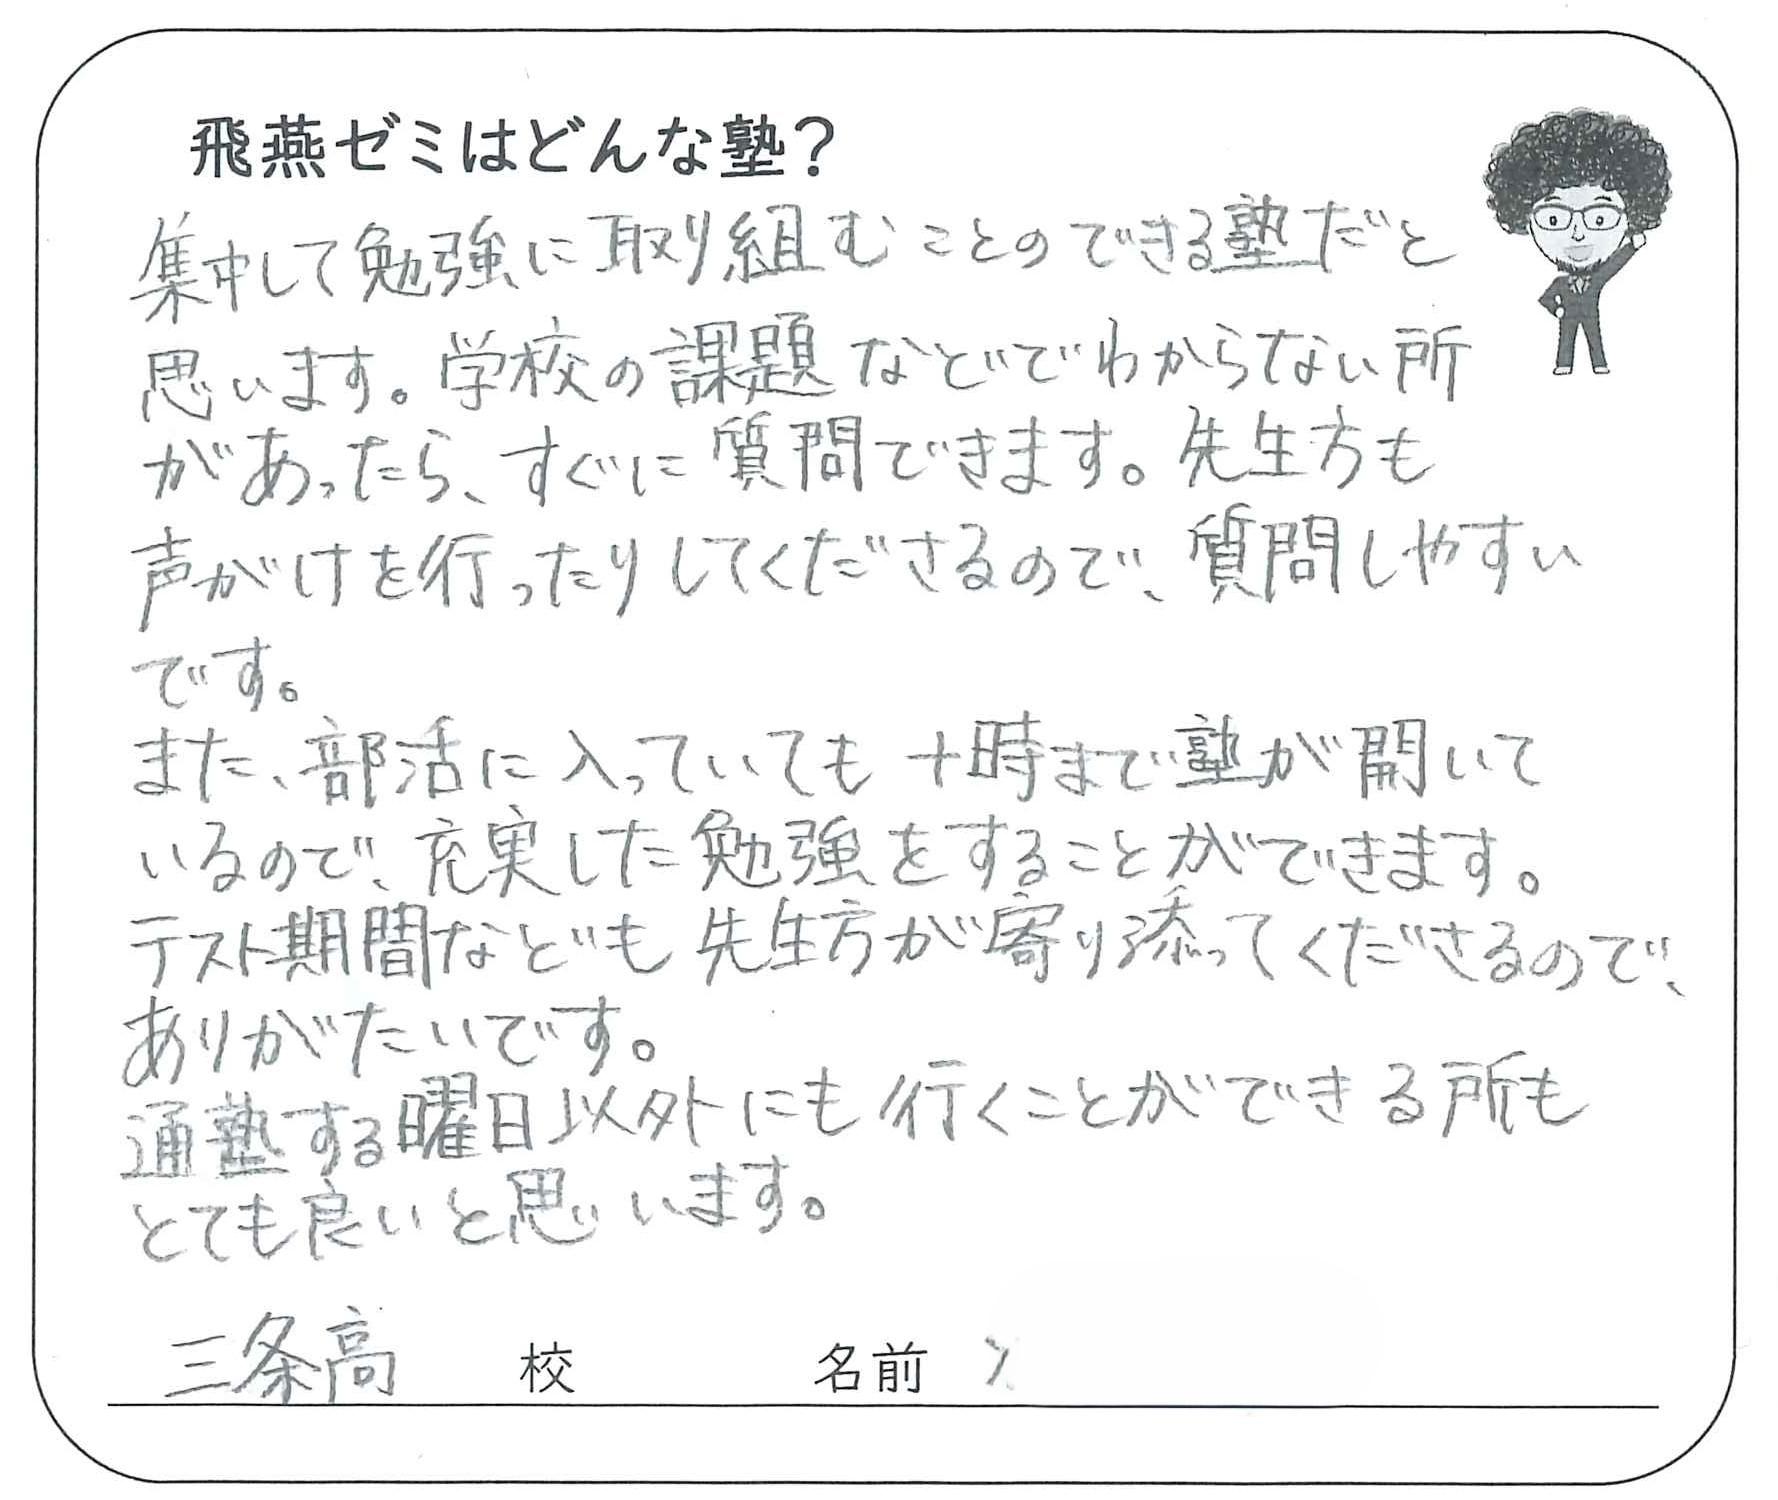 飛燕ゼミはどんな塾?
集中して勉強に取り組むことのできる塾だと
思います。学校の課題などでわからない所
があったら、すぐに質問できます。先生方も
声がけを行ったりしてくださるので、質問しやすい
です。
また、部活に入っていても十時まで塾が開いて
いるので、充実した勉強をすることができます。
テスト期間なども先生方が寄り添ってくださるので、
ありがたいです。
通塾する曜日以外にも行くことができる所も
とても良いと思います。
三条高 校 名前